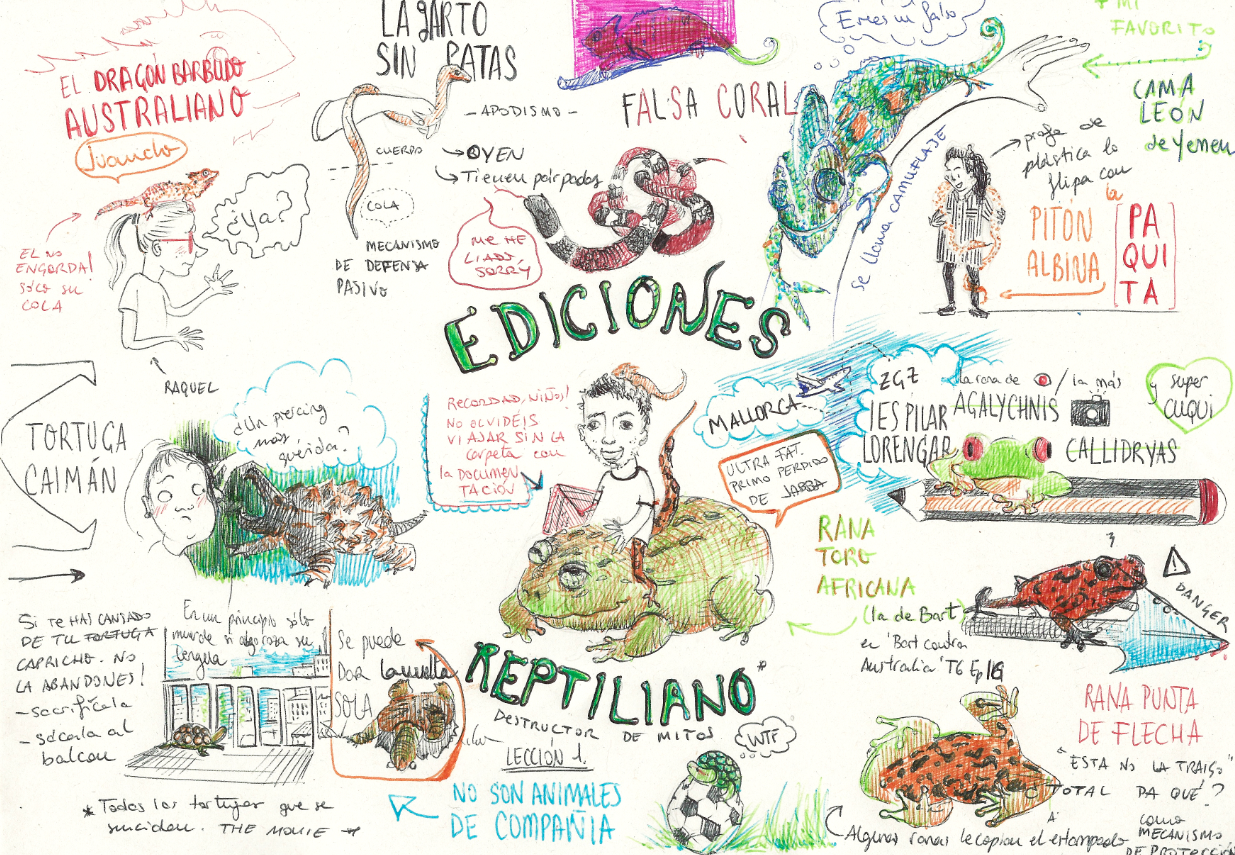 EL DRAGÓN BARBUDO
AUSTRALIANO
Juanicho
EL NO
ENGORDA!
SÓLO SU
COLA
¿Ya?
RAQUEL
LAGARTO
SIN PATAS
- APODISMO -
CUERPO
→ OYEN
→ Tienen párpados
COLA
MECANISMO
DE DEFENSA
PASIVO
FALSA CORAL
ME HE
LIADO,
SORRY
Eres un falso
Se llama CAMUFLAJE
+ MI
FAVORITO
CAMA
LEÓN
de Yemen
profa de
plástica lo
flipa con
la
PITÓN
ALBINA
PA
QUI
TA
EDICIONES
REPTILIANO*
DESTRUCTOR DE MITOS
LECCIÓN 1.
NO SON ANIMALES
DE COMPAÑIA
TORTUGA
CAIMÁN
¿Un piercing
mas
querida?
RECORDAD, NIÑOS!
NO OLVIDÉIS
VIAJAR SIN LA
carpeta con
la DOCUMEN
TACIÓN
MALLORCA
ZGZ
IES PILAR
LORENGAR
ULTRA FAT.
PRIMO PERDIDO
DE JABBA
la rana de / la más
AGALYCHNIS
CALLIDRYAS
y super
cuqui
RANA
TORO
AFRICANA
(la de Bart)
en 'Bart contra
Australia' T6 Ep16
DANGER
RANA PUNTA
DE FLECHA
"ESTA NO LA TRAIGO"
TOTAL PA QUÉ?
Algunas ranas le copian el estampado
como
MECANISMO
DE PROTECCIÓN
SI TE HAS CANSADO
DE TU TORTUGA
CAPRICHO. NO
LA ABANDONES!
- sacrifícala
- sácala al
balcón
En un principio sólo
muerde si algo roza su
lengua
Se puede
DAR la vuelta
SOLA
* Todas las tortugas que se
suicidan. THE MOVIE *
WTF